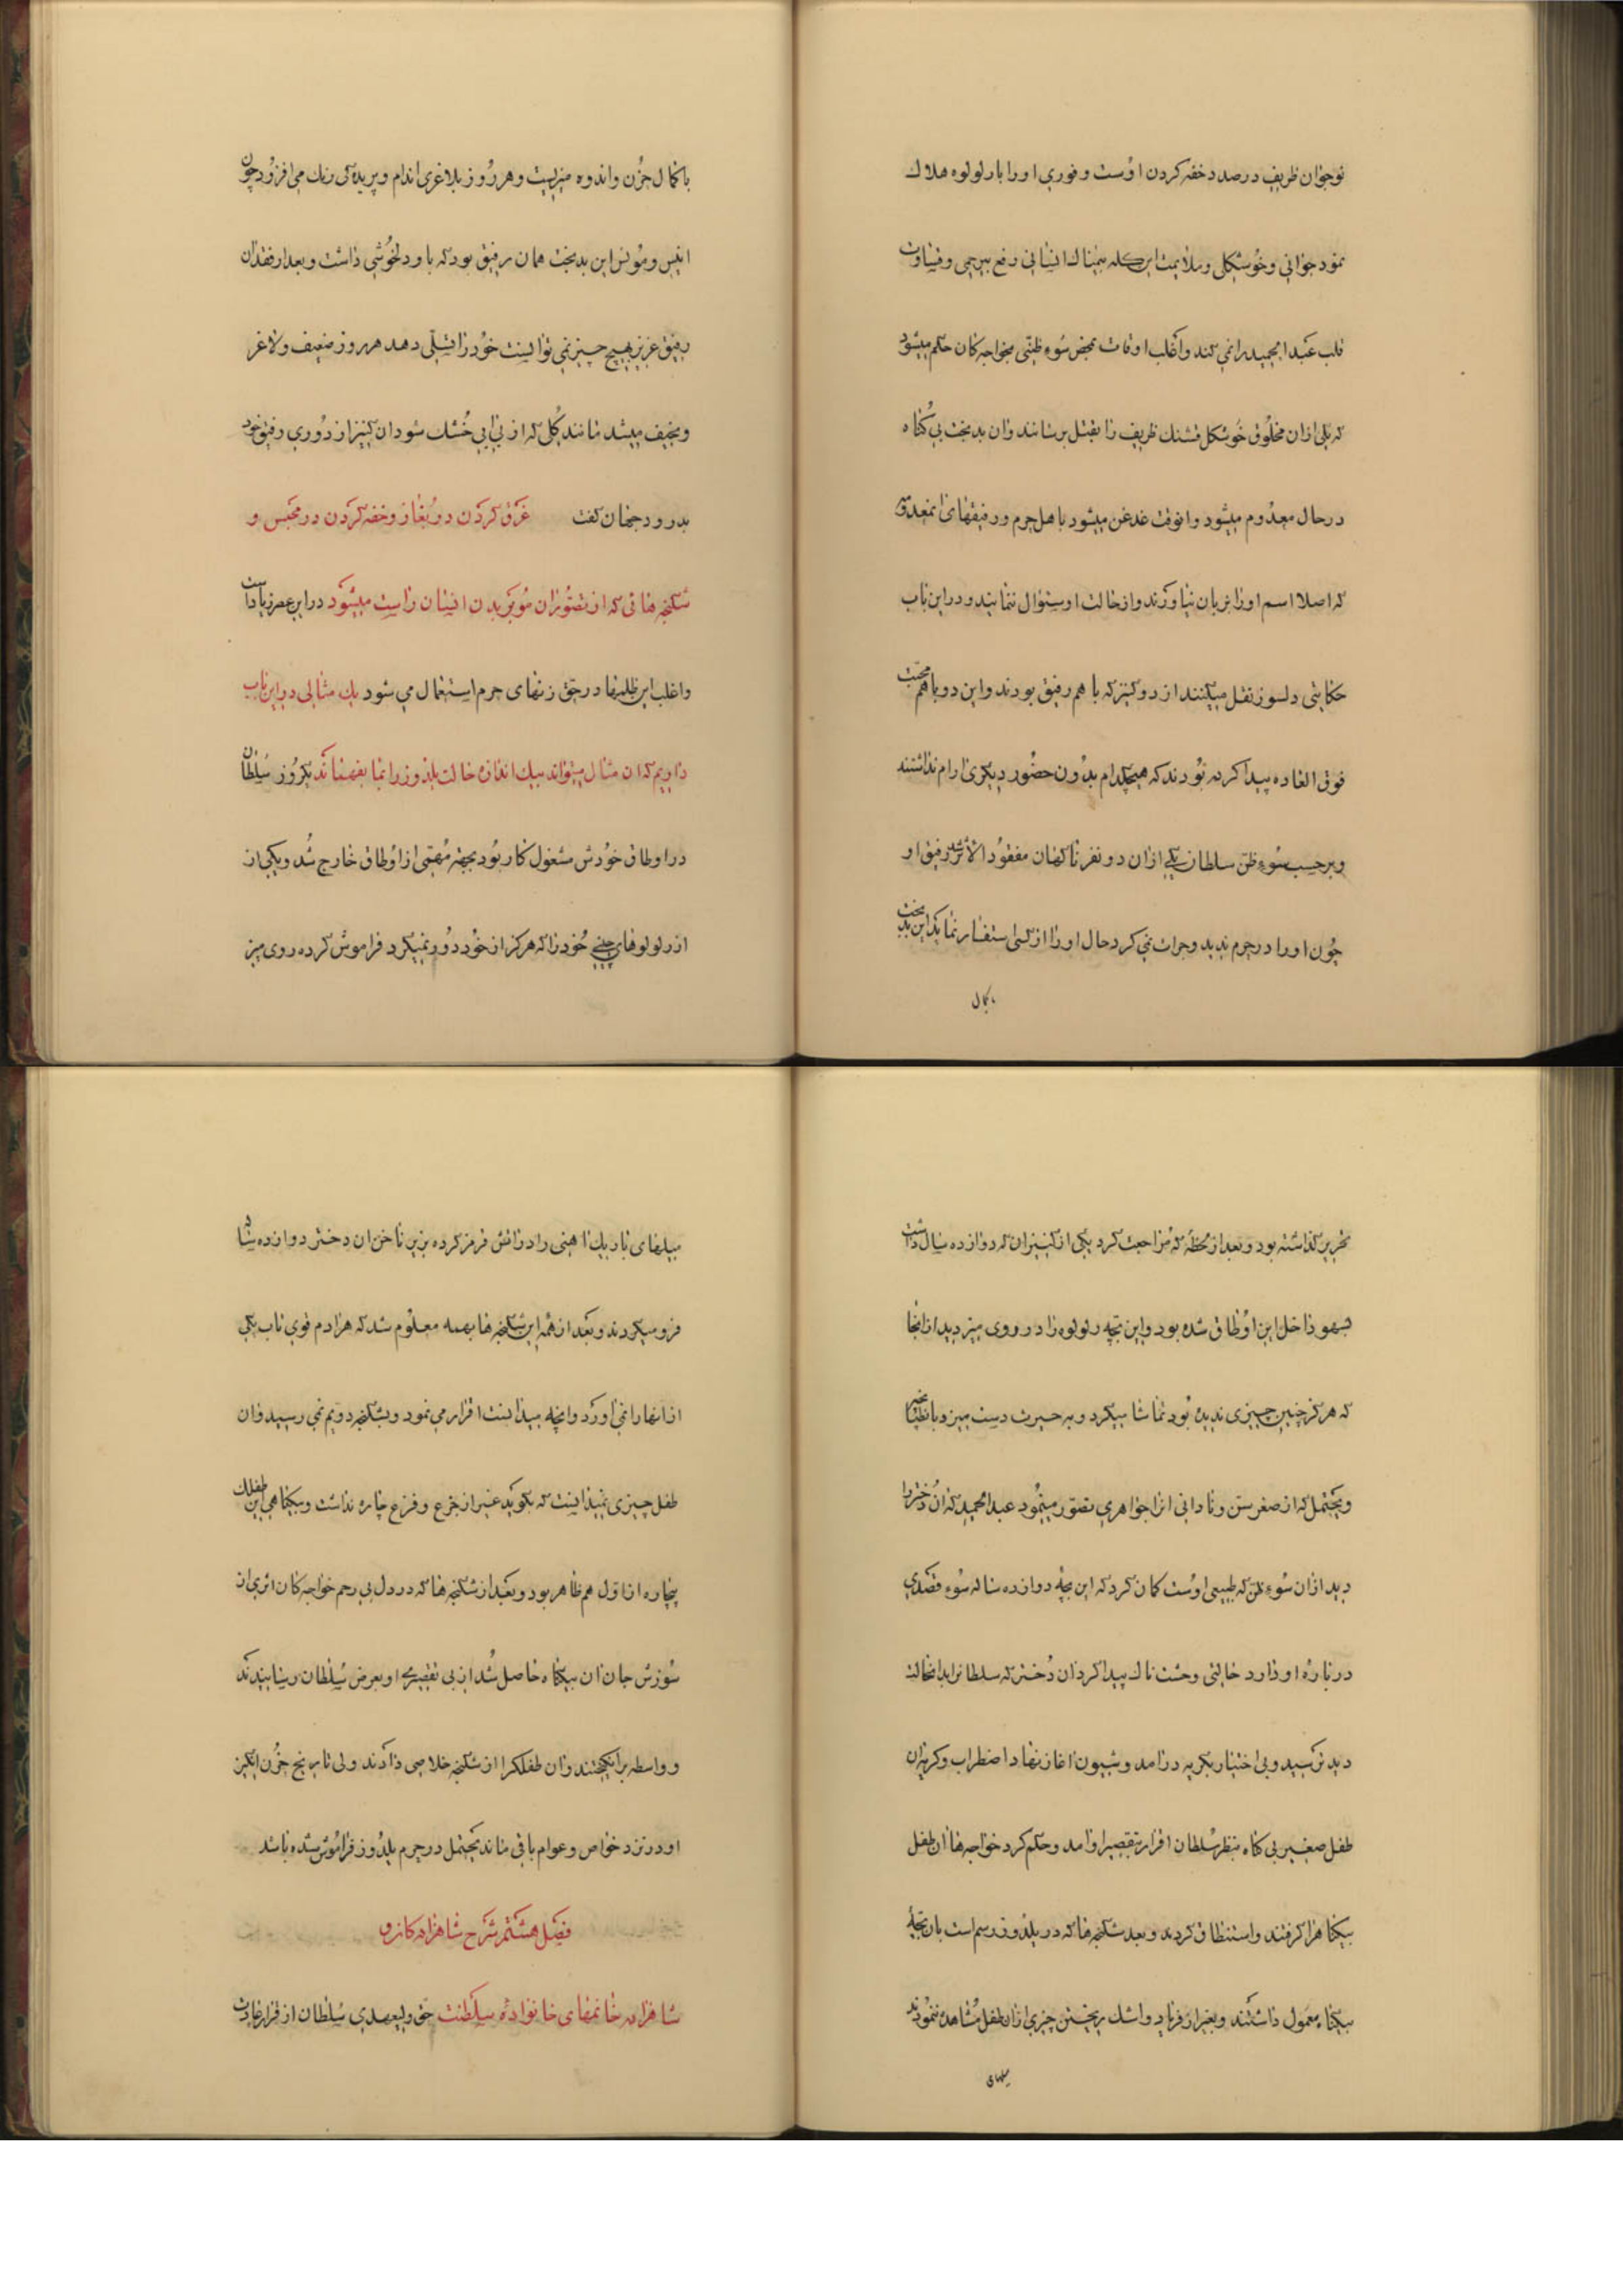 نوجوان ظریف درصدد خفه کردن اوست و فوری او را با رولوه هلاک
نمود جوانی و خوشکلی و ملایمت این کله سهمناک انسانی رفع بیرحمی و قساوت
قلب عبدالحمید را نمی کند و اغلب اوقات بمحض سوء ظنی بخواجه کان حکم میشود
که یکی از ان مخلوق خوشکل قشنک ظریف را بقتل برسانند و ان بدبخت بی کناه
در حال معدوم میشود و انوقت غدغن میشود باهل حرم و رفیقهای ان معدومه
که اصلا اسم او را بزبان نیاورند و از حالت او سئوال ننمایند و در این باب
حکایتی دلسوز نقل میکنند از دو کنیز که با هم رفیق بودند و این دو با هم محبت
فوق العاده پیدا کرده بودند که هیچکدام بدون حضور دیکری ارام نداشتند
و برحسب سوء ظن سلطان یکی از ان دو نفر ناکهان مفقود الاثر شد رفیق او
چون او را در حرم ندید و جرات نمی کرد حال او را از کسی استفسار نماید این بدبخت
بکمال
با کمال حزن و اندوه میزیست و هر روز بلاغری اندام و پریده کی رنک می افزود چون
انیس و مونس این بدبخت همان رفیق بود که باو دلخوشی داشت و بعد از فقدان
رفیق عزیز بهیچ چیز نمی توانست خود را تسلی دهد هر روز ضعیف و لاغر
و نحیف میشد مانند کلی که از بی ابی خشک شود ان کنیز از دوری رفیق خود
بدرود جهان کفت غرق کردن در بغاز و خفه کردن در محبس و
شکنجه هائی که از تصور ان مو بر بدن انسان راست میشود در این عصر زیاد است
و اغلب این ظلمها در حق زنهای حرم استعمال می شود یک مثالی در این باب
داریم که ان مثال میتواند بیک اندازه حالت یلدوز را بما بفهماند یکروز سلطان
در اوطاق خودش مشغول کار بود بجهة مهمی از اوطاق خارج شد و یکی از
از رولوهای جیبی خود را که هرکز از خود دور نمیکرد فراموش کرده روی میز
تحریر کذاشته بود و بعد از لحظه که مراجعت کرد یکی از کنیزان که دوازده سال داشت
سهو داخل این اوطاق شده بود و این بچه رولوه را در روی میز دید از انجا
که هرکز چنین چیزی ندیده بود تماشا میکرد و به حیرت دست میزد بان طپانچه
و یحتمل که از صغر سن و نادانی انرا جواهری تصور مینمود عبدالحمید که ان دختر را
دید از ان سوء ظن که طبیعی اوست کمان کرد که این بچه دوازده ساله سوء قصدی
درباره او دارد حالتی وحشت ناک پیدا کرد ان دختر که سلطانرا بدانحالت
دید ترسید و بی اختیار بکریه درامد و شیون اغاز نهاد اضطراب و کریه ان
طفل صغیر بی کناه بنظر سلطان اقرار بتقصیر او امد و حکم کرد خواجه ها ان طفل
بیکناهرا کرفتند و استنطاق کردند و بعد شکنجه ها که در یلدوز رسم است بان بچۀ
بیکناه معمول داشتند و بغیر از فریاد و اشک ریختن چیزی از ان طفل مشاهده ننمودند
میلهای
میلهای باریک اهنی را در اتش قرمز کرده بزیر ناخن ان دختر دوازده ساله
فرو میکردند و بعد از همه این شکنجه ها بهمه معلوم شد که هر ادم قوی تاب یکی
از انها را نمی اورد و انچه میدانست اقرار می نمود و بشکنجه دویم نمی رسید و ان
طفل چیزی نمیدانست که بکوید غیر از جزع و فزع چاره نداشت و بیکناهی این طفلک
بیچاره از اول هم ظاهر بود و بعد از شکنجه ها که در دل بی رحم خواجه کان اثری از
سوزش جان ان بیکناه حاصل شد از بی تقصیری او بعرض سلطان رسانیدند
و واسطه برانکیختند و ان طفلکرا از شکنجه خلاصی دادند ولی تاریخ حزن انکیز
او در نزد خواص و عوام باقی ماند یحتمل در حرم یلدوز فراموش شده باشد
فصل هشتم شرح شاهزاده کان و
شاهزاده خانمهای خانواده سلطنت حق ولیعهدی سلطان از قرار عادت